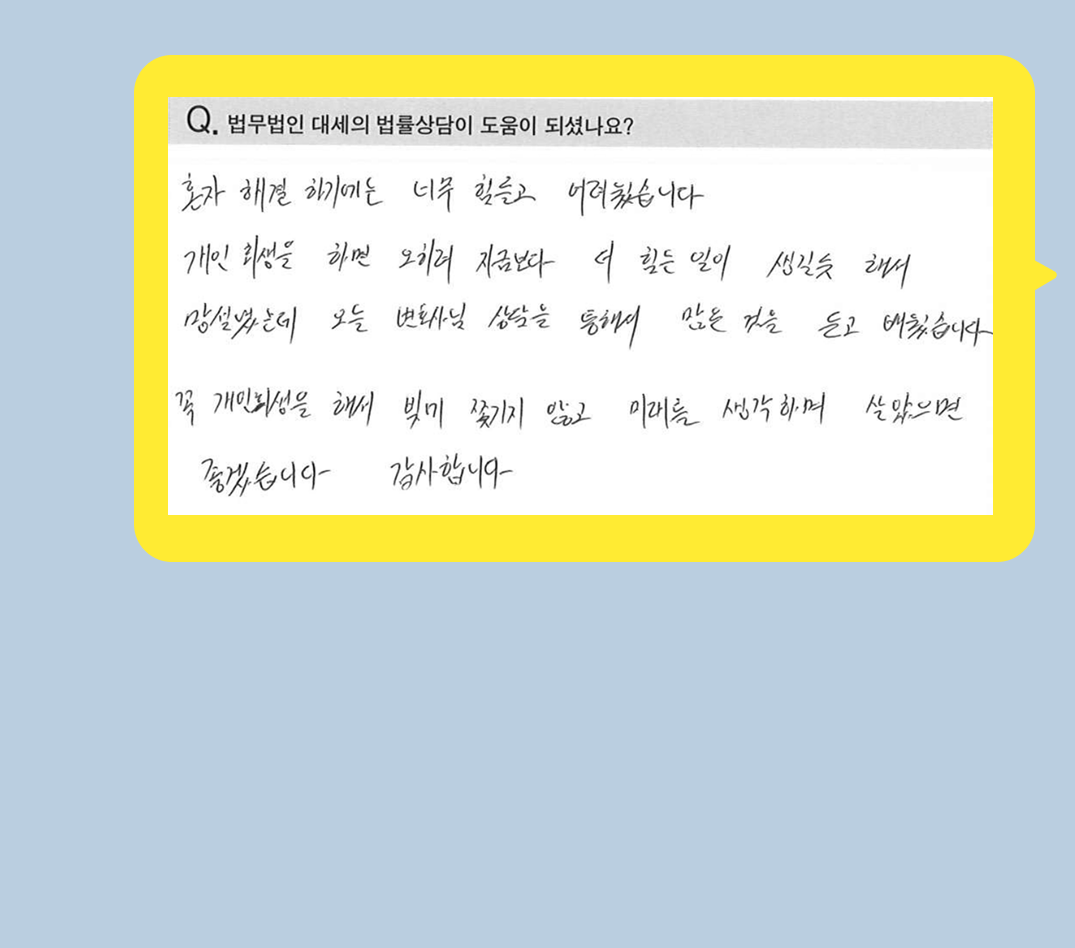 Q. 법무법인 대세의 법률상담이 도움이 되셨나요?
혼자 해결 하기에는 너무 힘들고 어려웠습니다
개인 회생을 하면 오히려 지금보다 더 힘든 일이 생길듯 해서
망설였는데 오늘 변호사님 상담을 통해서 많은 것을 듣고 배웠습니다
꼭 개인회생을 해서 빚에 쫓기지 않고 미래를 생각하며 살았으면
좋겠습니다 감사합니다